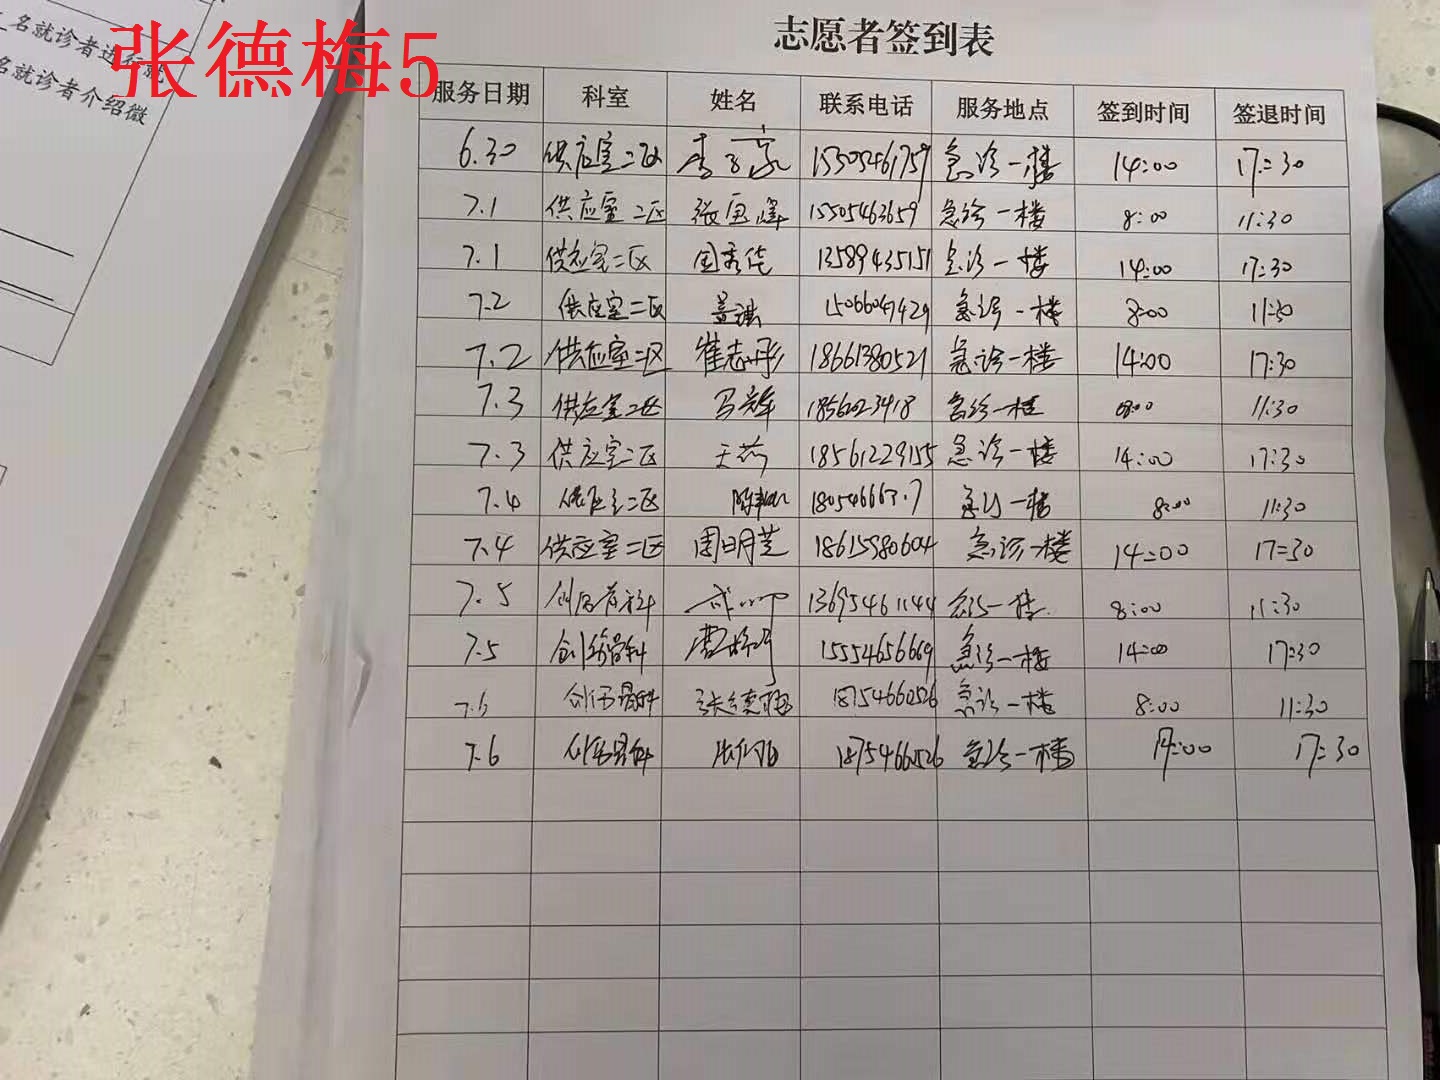 名就诊者进行就
名就诊者介绍微
张德梅5
志愿者签到表
服务日期 科室 姓名 联系电话 服务地点 签到时间 签退时间
6.30 供应室二区 李 15505461759 急诊一楼 14:00 17:30
7.1 供应室二区 张国峰 15505463659 急诊一楼 8:00 11:30
7.1 供应室二区 国秀佳 13589435151 急诊一楼 14:00 17:30
7.2 供应室二区 15066047429 急诊一楼 8:00 11:30
7.2 供应室二区 崔志彤 18661380521 急诊一楼 14:00 17:30
7.3 供应室二区 1856023418 急诊一楼 08:00 11:30
7.3 供应室二区 王芳 18561229155 急诊一楼 14:00 17:30
7.4 供应室二区 急诊一楼 8:00 11:30
7.4 供应室二区 周明芝 18615580604 急诊一楼 14:00 17:30
7.5 创伤骨科 13695461144 急诊一楼 8:00 11:30
7.5 创伤骨科 15554656669 急诊一楼 14:00 17:30
7.6 创伤骨科 张德梅 18754660526 急诊一楼 8:00 11:30
7.6 创伤骨科 18754660526 急诊一楼 14:00 17:30